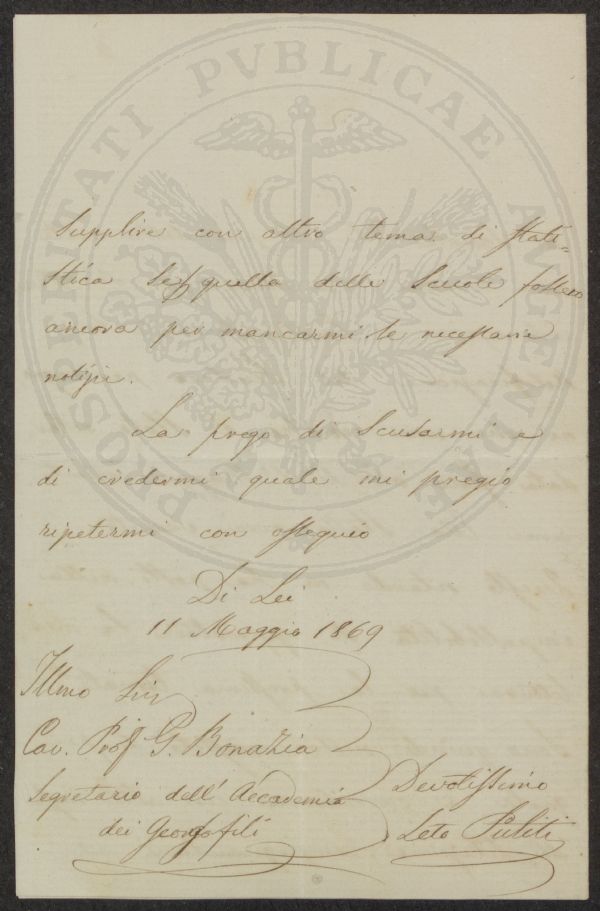 PROSPERITATI PVBLICAE AVGENDAE
supplire con altro tema di stati=
stica se quella delle scuole fossero
ancora per mancarmi le necessarie
notizie.
La prego di scusarmi e
di credermi quale mi pregio
ripetermi con ossequio
Di Lei
11 Maggio 1869
Illmo Sig
Cav. Prof G. Bonazia
Segretario dell' Accademia
dei Georgofili
Devotissimo
Leto Puliti